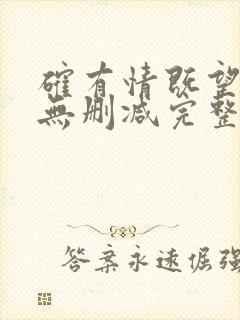 確有情既望
無删减完整
答案永遠倔強